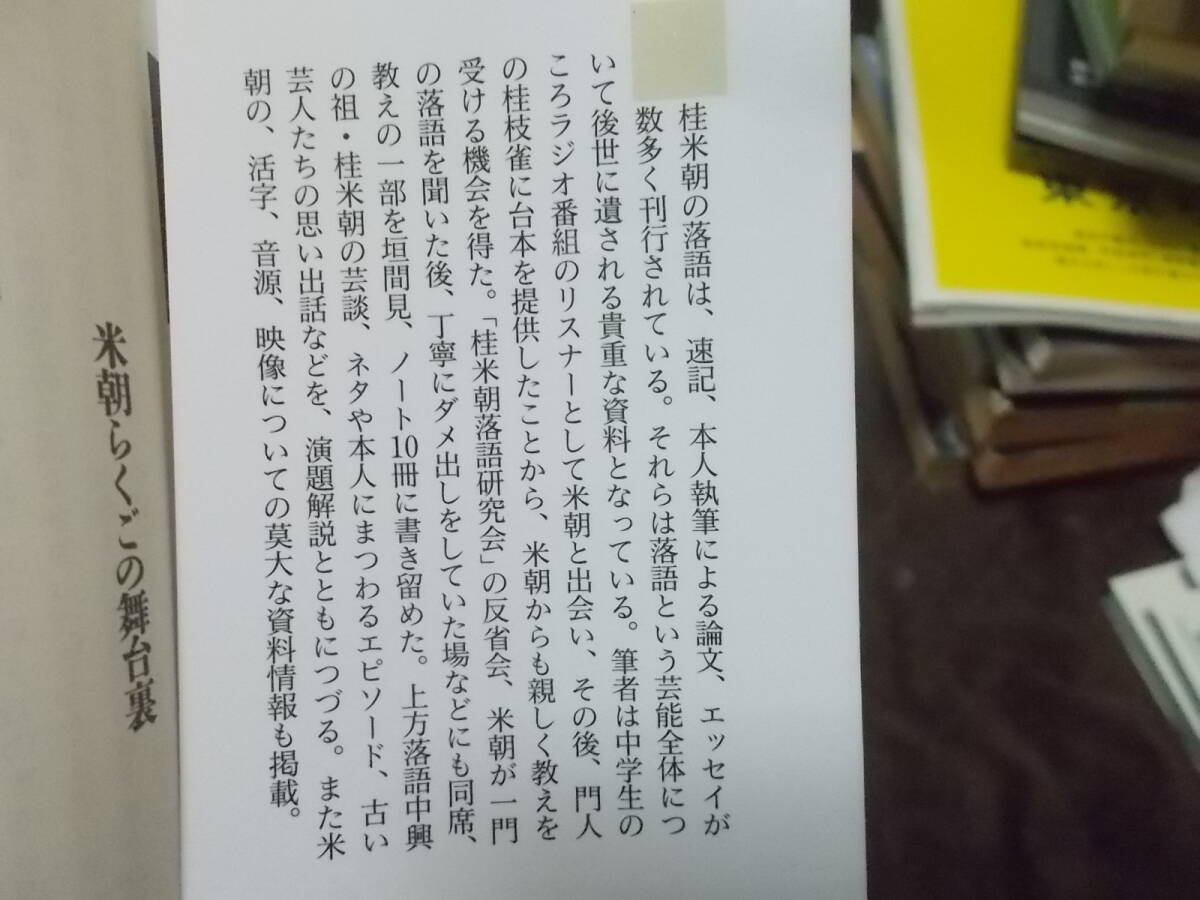 桂米朝の落語は、速記、本人執筆による論文、エッセイが
数多く刊行されている。それらは落語という芸能全体につ
いて後世に遺される貴重な資料となっている。筆者は中学生の
ころラジオ番組のリスナーとして米朝と出会い、その後、門人
の桂枝雀に台本を提供したことから、米朝からも親しく教えを
受ける機会を得た。「桂米朝落語研究会」の反省会、米朝が一門
の落語を聞いた後、丁寧にダメ出しをしていた場などにも同席、
教えの一部を垣間見、ノート10冊に書き留めた。上方落語中興
の祖・桂米朝の芸談、ネタや本人にまつわるエピソード、古い
芸人たちの思い出話などを、演題解説とともにつづる。また米
朝の、活字、音源、映像についての莫大な資料情報も掲載。
米朝らくごの舞台裏